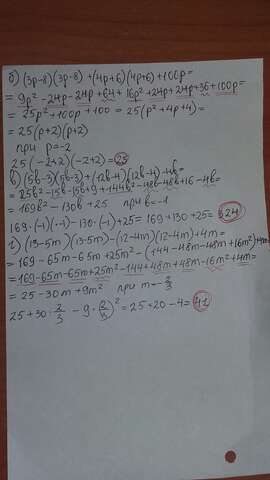 б) (3p-8)(3p-8)+(4p+6)(4p+6)+100p=
= 9p²-24p-24p+64+16p²+24p+24p+36+100p=
= 25p²+100p+100=25(p²+4p+4)=
= 25(p+2)(p+2)
при p=-2
25(-2+2)(-2+2)=25
в) (5в-3)(5в-3)+(12в-4)(12в-4)-4в=
= 25в²-15в-15в+9+144в²-48в-48в+16-4в=
= 169в²-130в+25 при в=-1
169·(-1)·(-1)-130·(-1)+25=169+130+25=324
г) (13-5m)(13-5m)-(12-4m)(12-4m)+4m=
= 169-65m-65m+25m²-(144-48m-48m+16m²)+4m=
= 169-65m-65m+25m²-144+48m+48m-16m²+4m=
= 25-30m+9m² при m=-2/3
25+30·2/3-9·(2/3)²=25+20-4=41